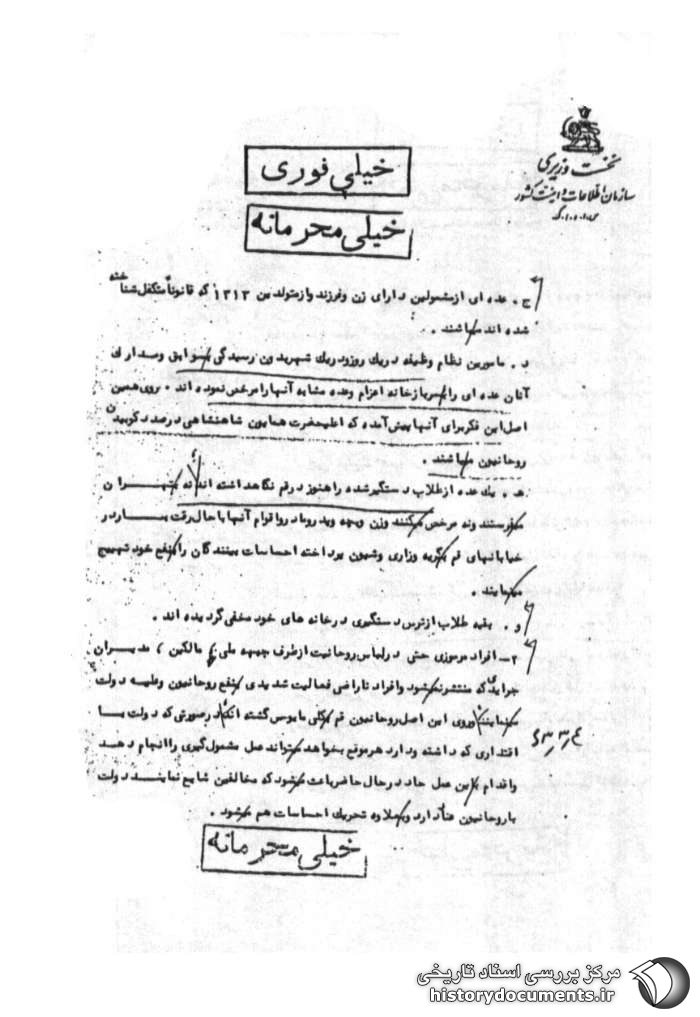 نخست وزیری
سازمان اطلاعات و امنیت کشور
خیلی فوری
خیلی محرمانه
ج . عده ای ازمشمولین دارای زن وفرزند وازمتولدین ۱۳۱۳ که قانوناً متکفل شناخته
شده اند میباشند .
د . مامورین نظام وظیفه دریک روزودریک شهربدون رسیدگی بسوابق ومدارک
آنان عده ای رابسربازخانه اعزام وعده مشابه آنهارامرخص نموده اند . روی همین
اصل این فکربرای آنهاپیش آمده که اعلیحضرت همایون شاهنشاهی درصدد کوبیدن
روحانیون میباشند .
هـ . یک عده ازطلاب دستگیرشده راهنوز درقم نگاهداشته اند نه بتهران
میفرستند ونه مرخص میکنند وزن وبچه وپدرومادرواقوام آنهاباحال رقت باردر
خیابانهای قم بگریه وزاری وشیون پرداخته احساسات بینندگان رابنفع خود تهییج
مینمایند .
و . بقیه طلاب ازترس دستگیری درخانه های خود مخفی گردیده اند .
۲ــ افراد مرموزی حتی درلباس روحانیت ازطرف جبهه ملی ، مالکین ، مدیران
جرایدی که منتشرنمیشود وافراد ناراضی فعالیت شدیدی بنفع روحانیون وعلیه دولت
مینمایند وروی این اصل روحانیون قم بکلی مایوس گشته اند درصورتی که دولت با
اقتداری که داشته ودارد هرموقع بخواهد میتواند عمل مشمول گیری راانجام دهد
واقدام باین عمل حاد درحال حاضرباعث میشود که مخالفین شایع نمایند دولت
باروحانیون عناد دارد وبعلاوه تحریک احساسات هم میشود .
خیلی محرمانه
مرکز بررسی اسناد تاریخی
historydocuments.ir